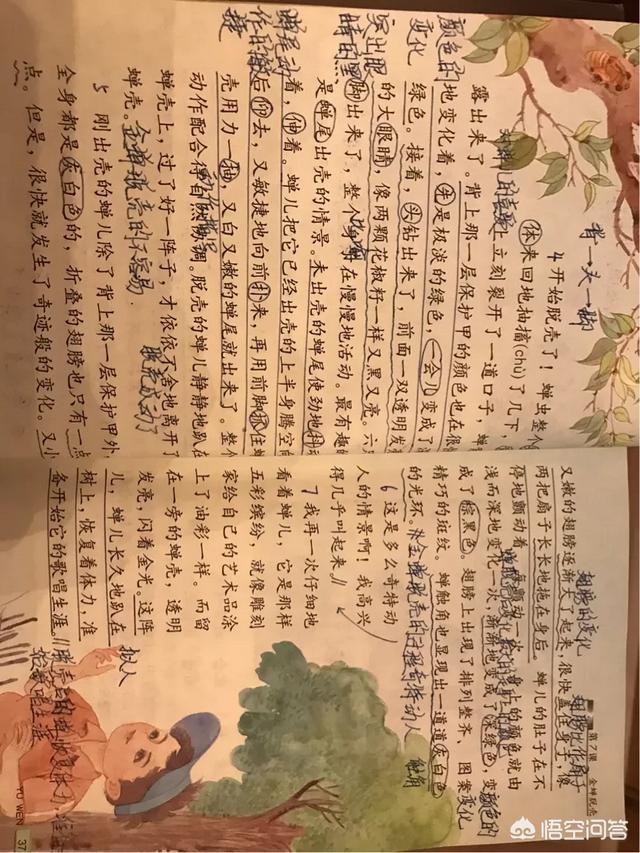 背→头→脚
4 开始脱壳了！蝉虫整个
体来回地抽搐(chù)了几下，
上立刻裂开了一道口子，蝉
露出来了。背上那一层保护甲的颜色也在很
颜色的
变化
地变化着，先是极淡的绿色，一会儿变成了
绿色。接着，头钻出来了，前面一双透明发
突出眼
睛的黑
的大眼睛，像两颗花椒籽一样又黑又亮。六只
脚出来了，整个身体在慢慢地活动。最有趣
是蝉尾出壳的情景。未出壳的蝉尾使劲地抖动
蝉尾动
作的敏
捷
着，伸着。蝉儿把它已经出壳的上半身腾空向
后仰去，又敏捷地向前扑来，再用前脚抓住
壳用力一抽，又白又嫩的蝉尾就出来了。整个
动作配合得自然协调。脱壳的蝉儿静静地趴在
蝉壳上，过了好一阵子，才依依不舍地离开了
蝉壳。金蝉脱壳的不容易
脱壳成功了
5 刚出壳的蝉儿除了背上那一层保护甲外，
全身都是灰白色的，折叠的翅膀也只有一点
点。但是，很快就发生了奇迹般的变化。又小
第7课 金蝉脱壳
翅膀的变化
又嫩的翅膀逐渐大了起来，很快盖住身子，像
两把扇子长长地拖在身后。蝉儿的肚子在不
停地颤动着，每颤动一次，身上的颜色就由
浅而深地变化一次，渐渐地变成了深绿色，变
颜色的
变化
成了棕黑色。翅膀上出现了排列整齐、图案
精巧的斑纹。蝉触角也显现出一道道灰白色
触角
的光环。
6 这是多么奇特动
人的情景啊！我高兴
得几乎叫起来。
7 我再一次仔细地
看着蝉儿，它是那样
五彩缤纷，就像雕刻
家给自己的艺术品涂
上了油彩一样。而留
在一旁的蝉壳，透明
发亮，闪着金光。这阵
拟人
儿，蝉儿长久地趴在
树上，恢复着体力，准
备开始它的歌唱生涯。
YU WEN 37
悟空问答